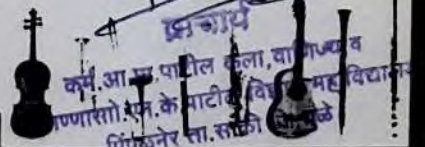 प्राचार्य
कर्म.आ.मा.पाटील कला,वाणिज्य व
अण्णासो.एन.के.पाटील विज्ञान महाविद्यालय
पिंपळनेर ता.साक्री जि.धुळे